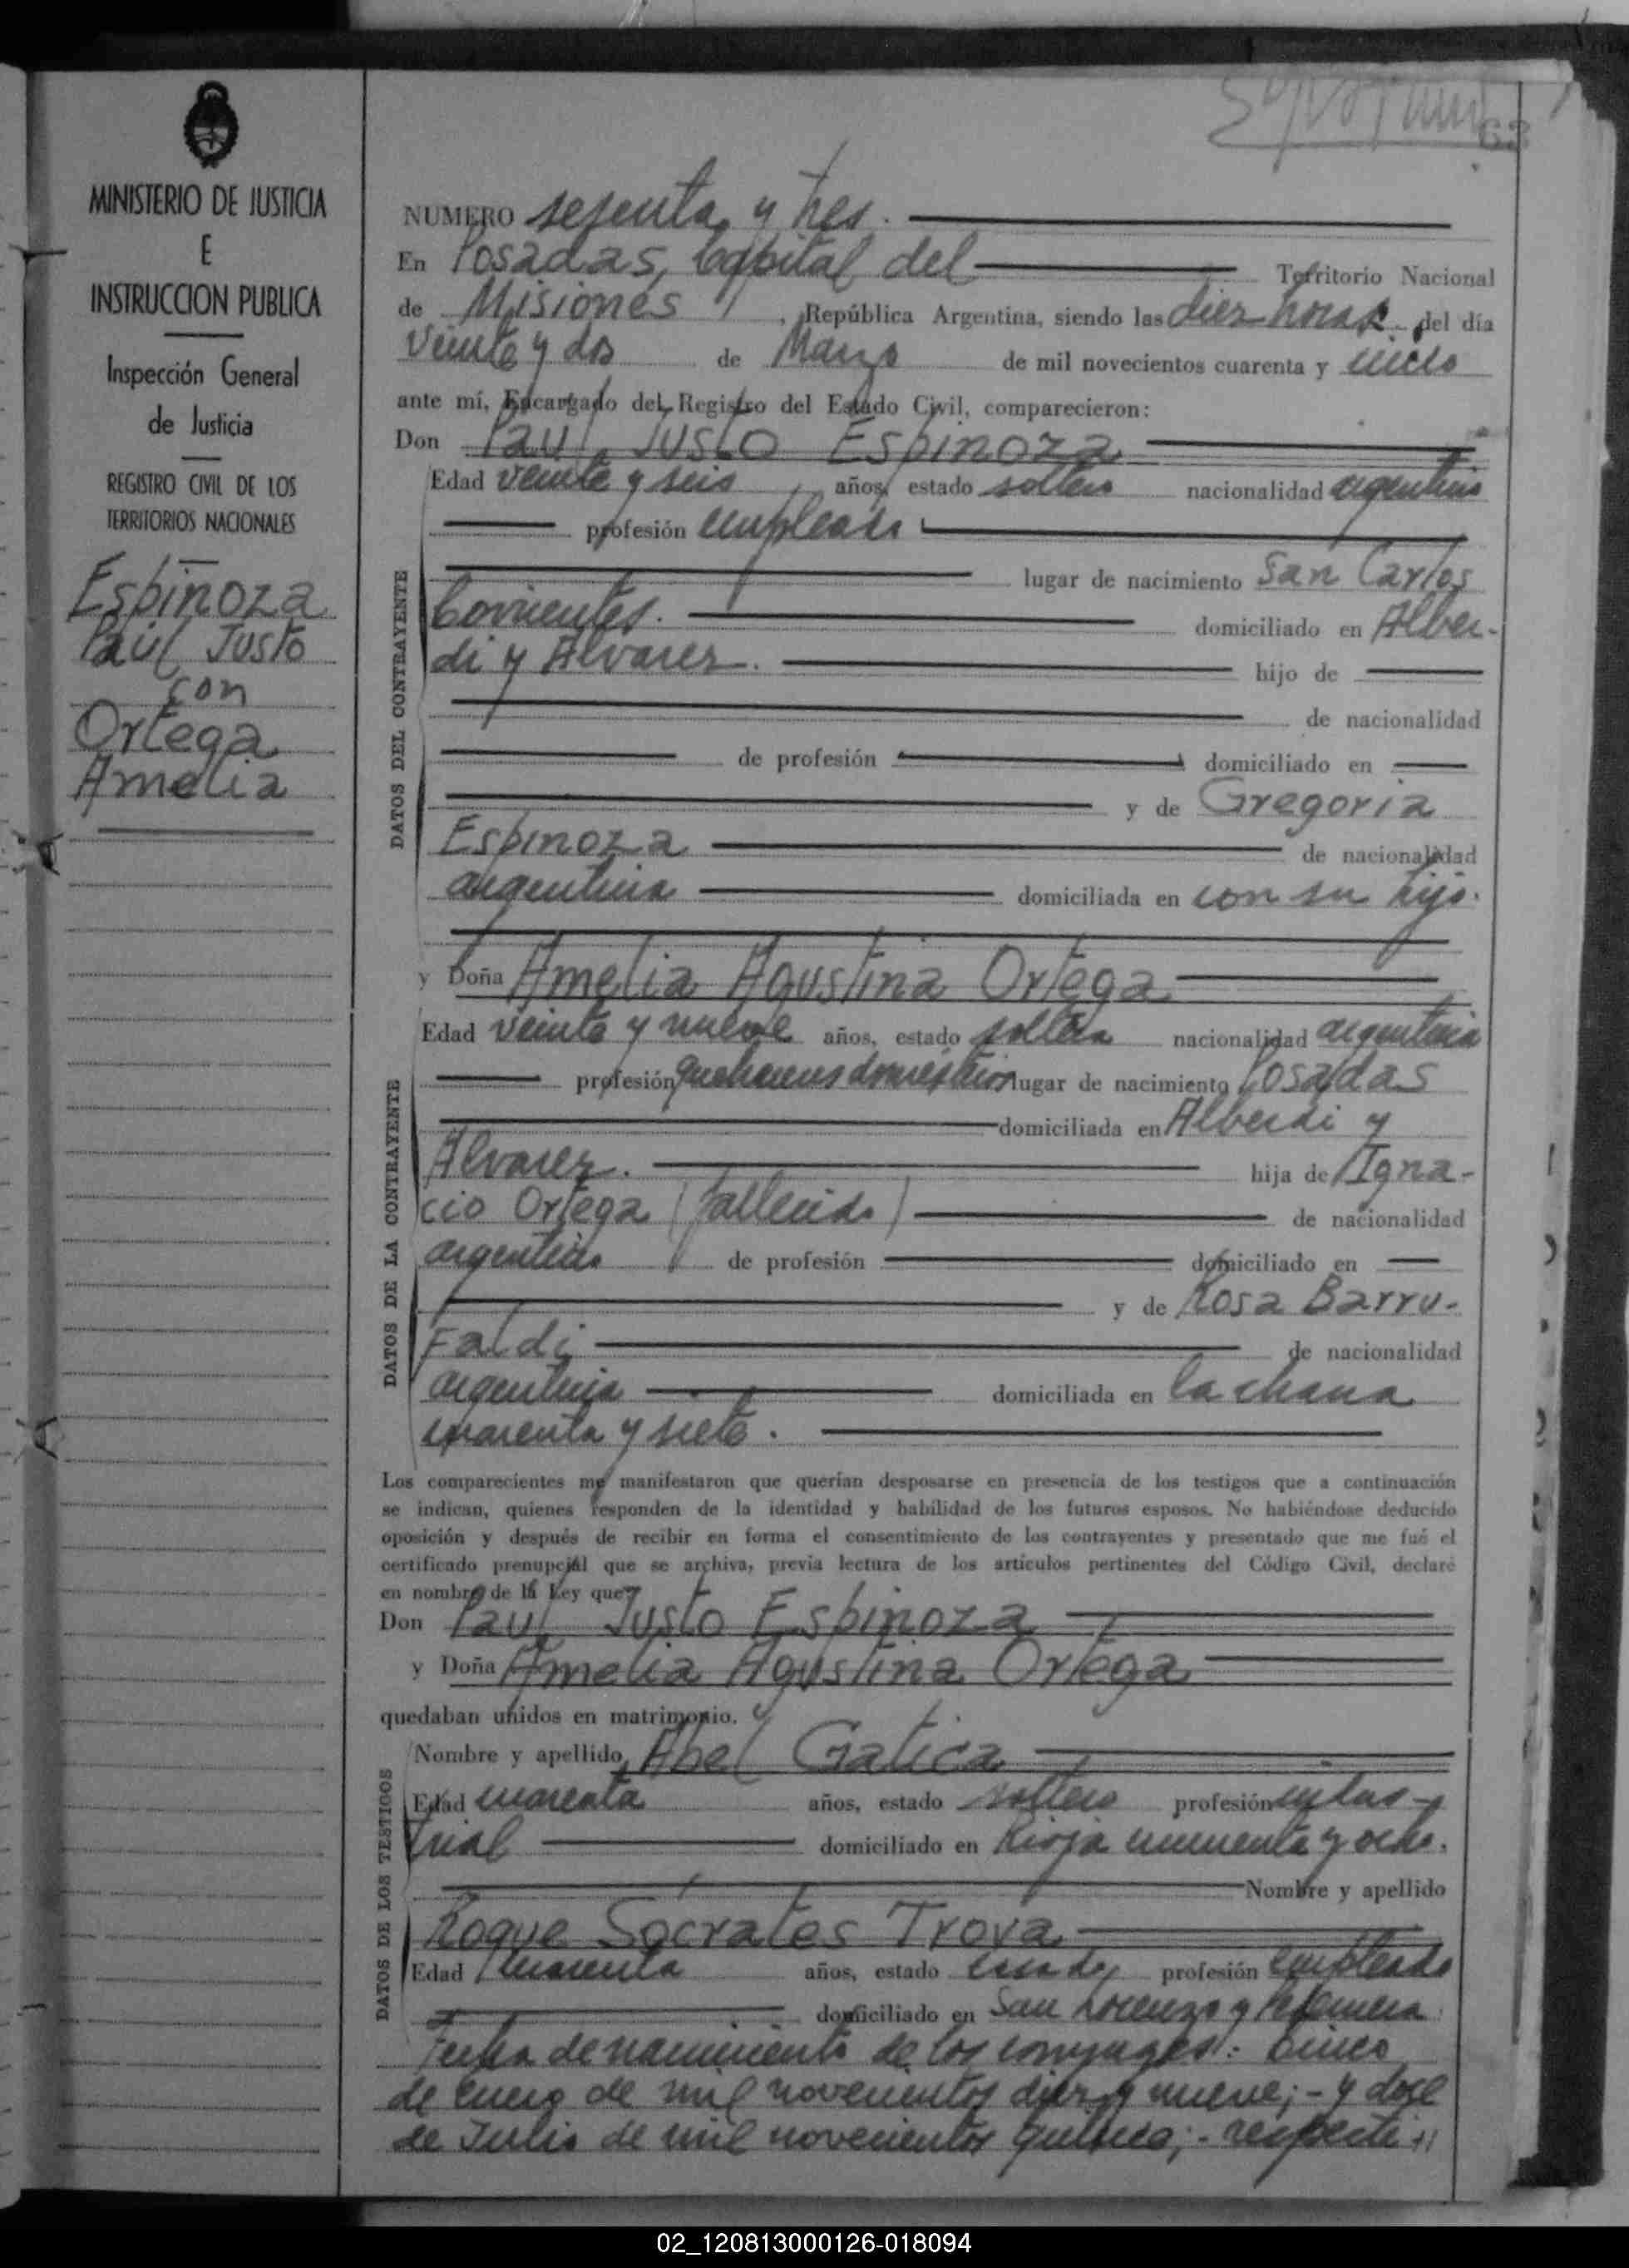 MINISTERIO DE JUSTICIA
E
INSTRUCCION PUBLICA
Inspección General
de Justicia
REGISTRO CIVIL DE LOS
TERRITORIOS NACIONALES
Espinoza
Paul Justo
con
Ortega
Amelia
63
NUMERO sesenta y tres.
En Posadas, Capital del Territorio Nacional
de Misiones, República Argentina, siendo las diez horas del día
veinte y dos de Marzo de mil novecientos cuarenta y cinco
ante mí, Encargado del Registro del Estado Civil, comparecieron:
Don Paul Justo Espinoza
DATOS DEL CONTRAYENTE
Edad veinte y seis años, estado soltero nacionalidad argentino
profesión empleado
lugar de nacimiento San Carlos
Corrientes. domiciliado en Alber-
di y Alvarez. hijo de
de nacionalidad
de profesión domiciliado en
y de Gregoria
Espinoza de nacionalidad
argentina domiciliada en con su hijo.
y Doña Amelia Agustina Ortega
DATOS DE LA CONTRAYENTE
Edad veinte y nueve años, estado soltera nacionalidad argentina
profesión quehaceres domésticos lugar de nacimiento Posadas
domiciliada en Alberdi y
Alvarez. hija de Igna-
cio Ortega (fallecido) de nacionalidad
argentino de profesión domiciliado en
y de Rosa Barru-
Faldi de nacionalidad
argentina domiciliada en la chacra
cuarenta y siete.
Los comparecientes me manifestaron que querían desposarse en presencia de los testigos que a continuación
se indican, quienes responden de la identidad y habilidad de los futuros esposos. No habiéndose deducido
oposición y después de recibir en forma el consentimiento de los contrayentes y presentado que me fué el
certificado prenupcial que se archiva, previa lectura de los artículos pertinentes del Código Civil, declaré
en nombre de la Ley que
Don Paul Justo Espinoza
y Doña Amelia Agustina Ortega
quedaban unidos en matrimonio.
DATOS DE LOS TESTIGOS
Nombre y apellido Abel Gatica
Edad cuarenta años, estado soltero profesión indus-
trial domiciliado en Rioja cincuenta y ocho.
Nombre y apellido
Roque Sócrates Trova
Edad cuarenta años, estado casado profesión empleado
domiciliado en San Lorenzo y
Fecha de nacimiento de los conyuges: Cinco
de enero de mil novecientos diez y nueve; - y doce
de Julio de mil novecientos quince; - respecti
02_120813000126-018094